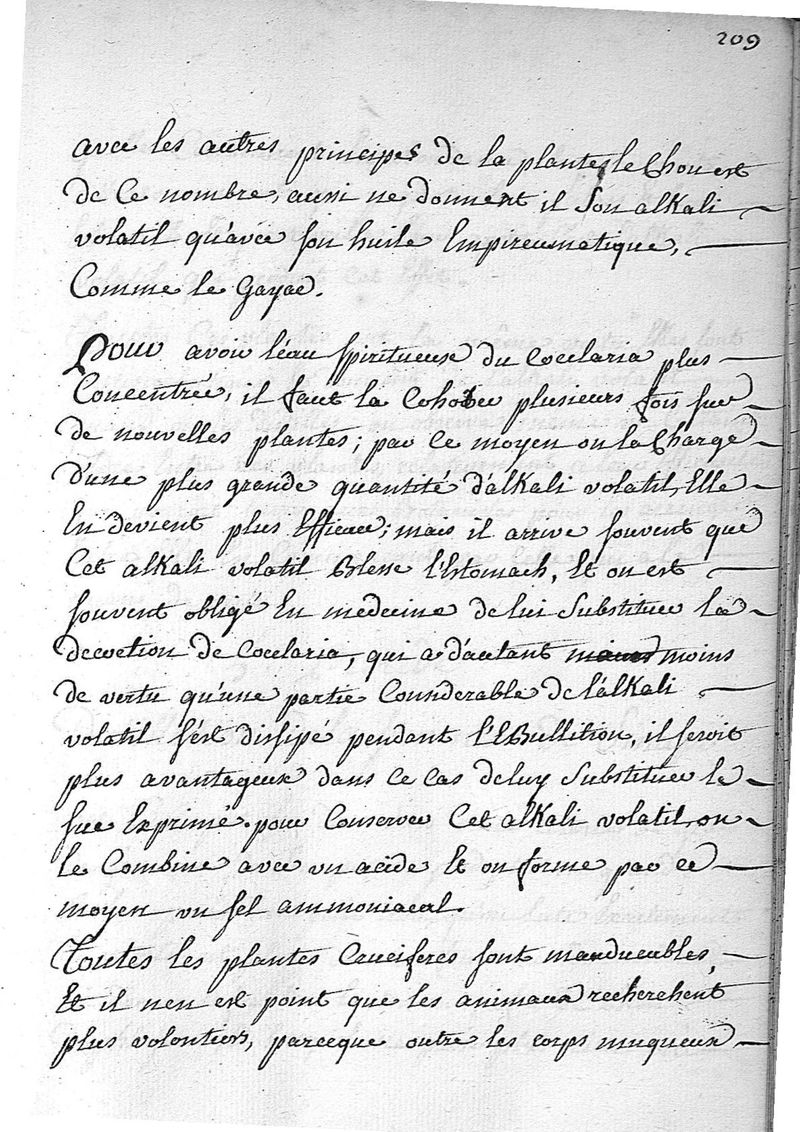 209
avec les autres principes de la plantes le Chou est
de Ce nombre, aussi ne donnent il son alkali
volatil qu'avec son huile Empireumatique,
Comme le Gayac.
Pour avoir l'eau spiritueuse du Coclearia plus
Concentrée, il faut la Cohober plusieurs fois sur
de nouvelles plantes; par ce moyen on la Charge
D'une plus grande quantité d'alkali volatil, Elle
En devient plus Efficace; mais il arrive souvent que
Cet alkali volatil Blesse l'Estomach, Et on est
souvent obligé En medecine de lui Substituer la
decoction de Coclearia, qui a d'autant moins
de vertu qu'une partie Considerable de l'alkali
volatil s'est dissipé pendant l'EBullition, il seroit
plus avantageux dans ce cas de luy Substituer le
suc Exprimé. pour Conserver Cet alkali volatil, on
le Combine avec un acide Et on forme par ce
moyen un sel ammoniacal.
Toutes les plantes Cruciferes sont manducables,
Et il n'en est point que les animaux recherchent
plus volontiers, parceque outre les corps muqueux